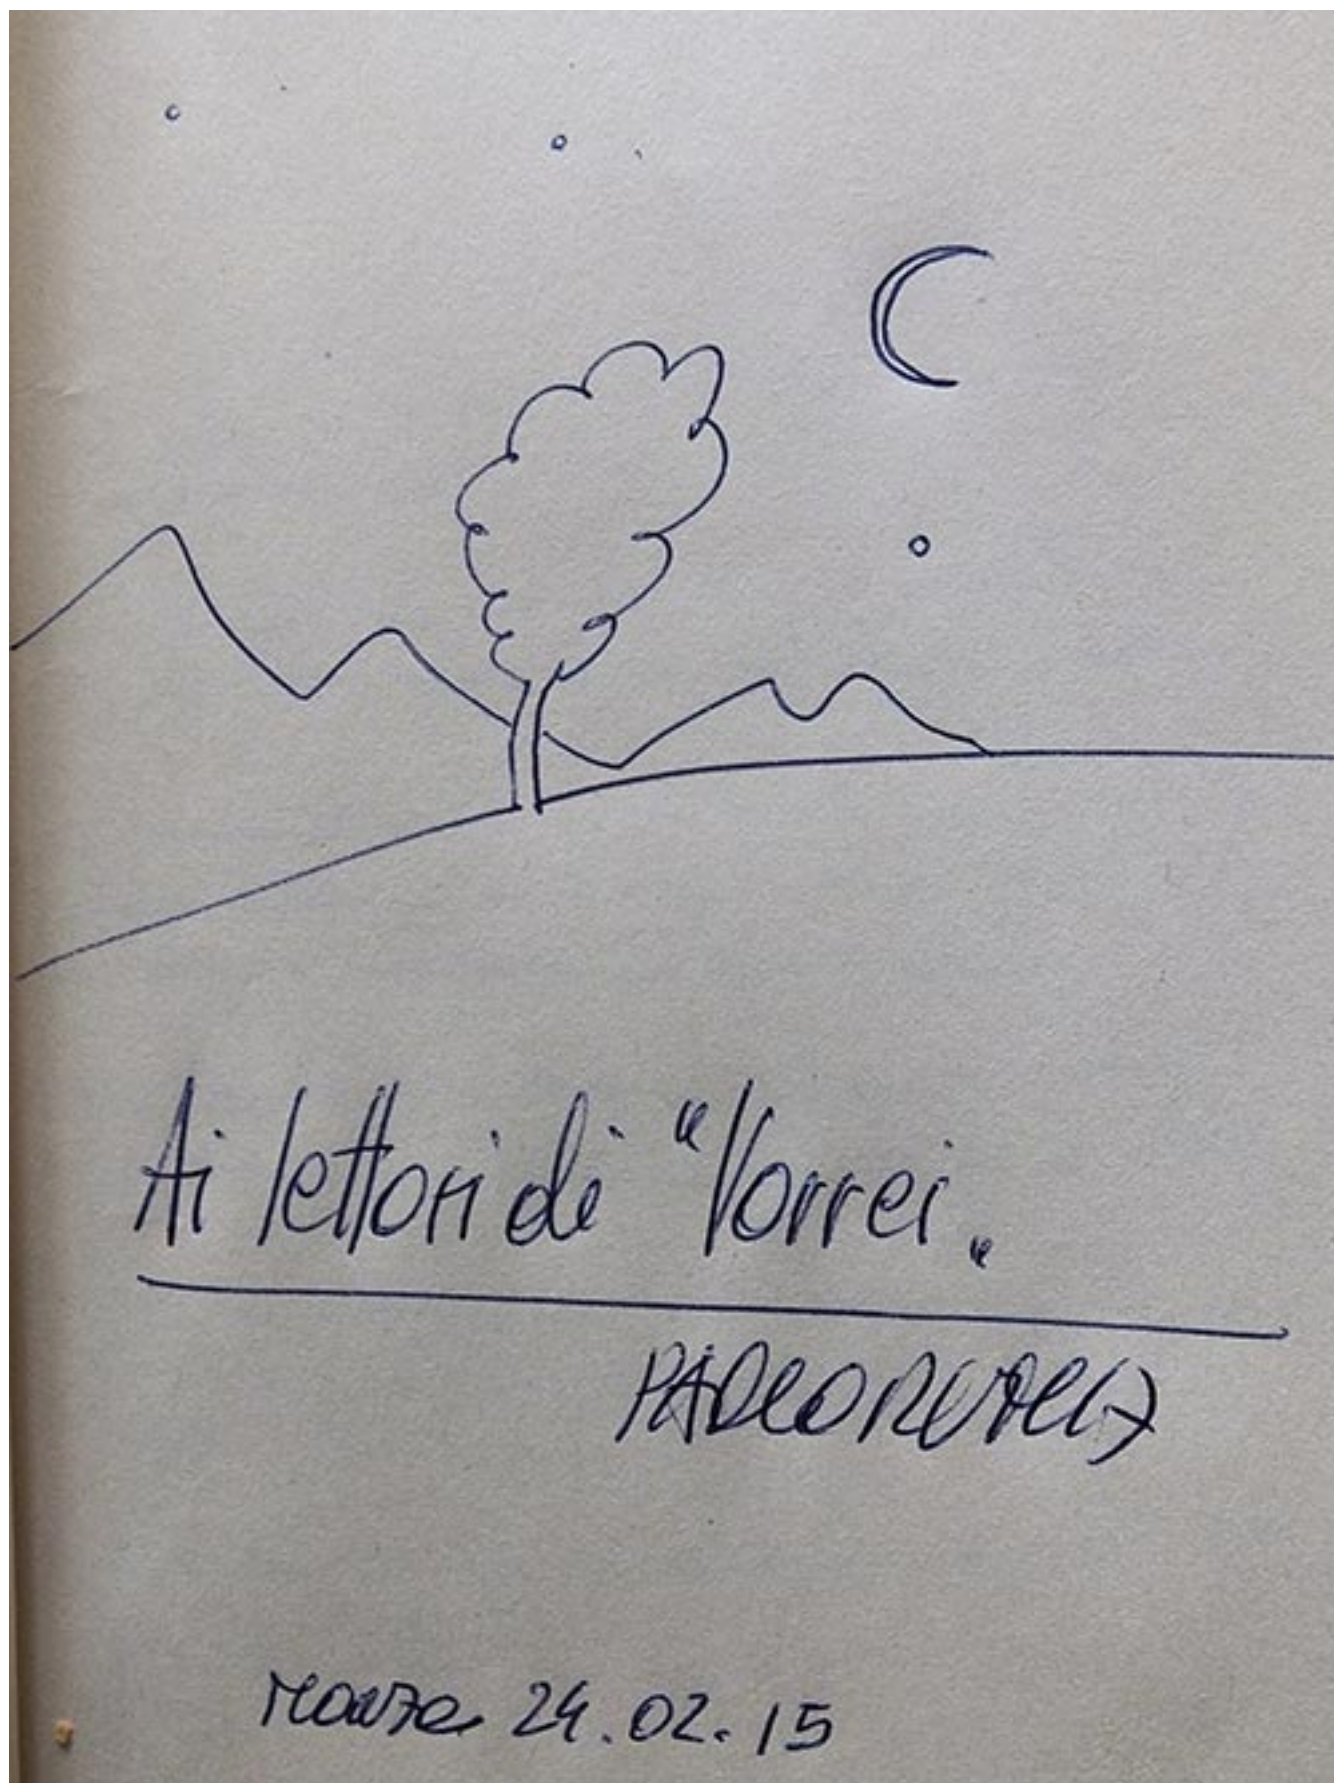 Ai lettori di "Vorrei„
PAOLO RUMIZ
Monza 24.02.15